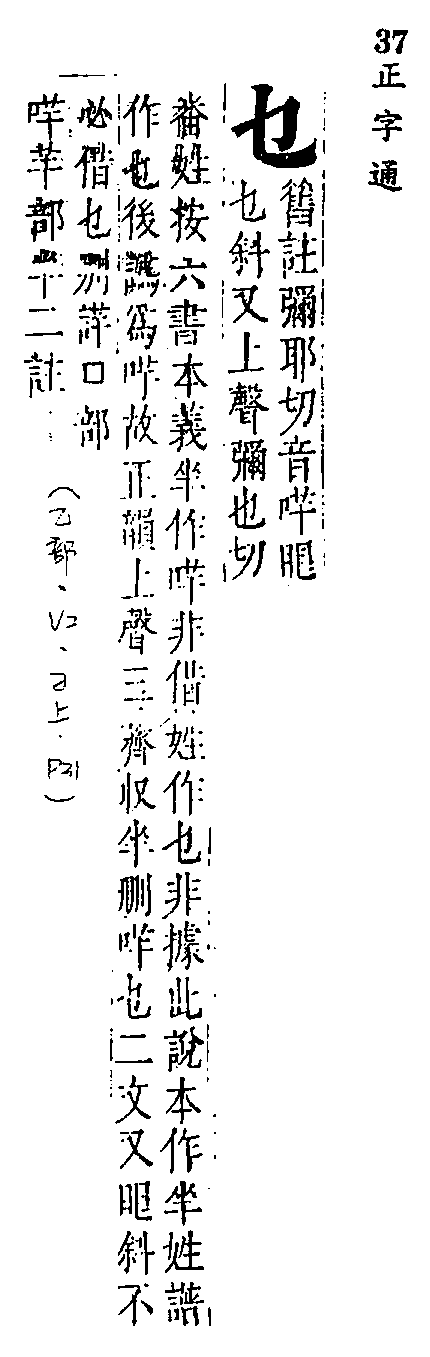 37 正字通
乜
舊註彌耶切音哶眼
乜斜又上聲彌也切
番姓按六書本義芈作哶非借姓作乜非據此說本作芈姓譜
作乜後譌爲哶故正韻上聲三薺收芈刪哶乜二文又眼斜不
必借乜刪詳口部
哶羊部芈二註
（乙部、V2、子上、P31）